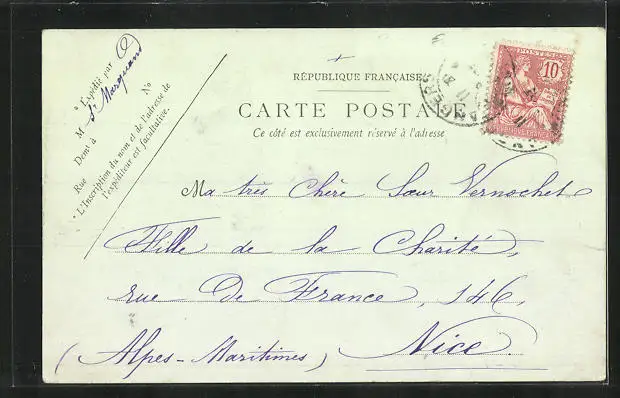 RÉPUBLIQUE FRANÇAISE
CARTE POSTALE
Ce côté est exclusivement réservé à l'adresse
Expédié par
M Sr Marguant
Demt à
Rue No
* L'Inscription du nom et de l'adresse de
l'expéditeur est facultative.
POSTES
10
REPUBLIQUE FRANÇAISE
ANGERS
Ma très Chère Sœur Vernochet
Fille de la Charité,
rue De France, 146,
(Alpes-Maritimes) Nice.